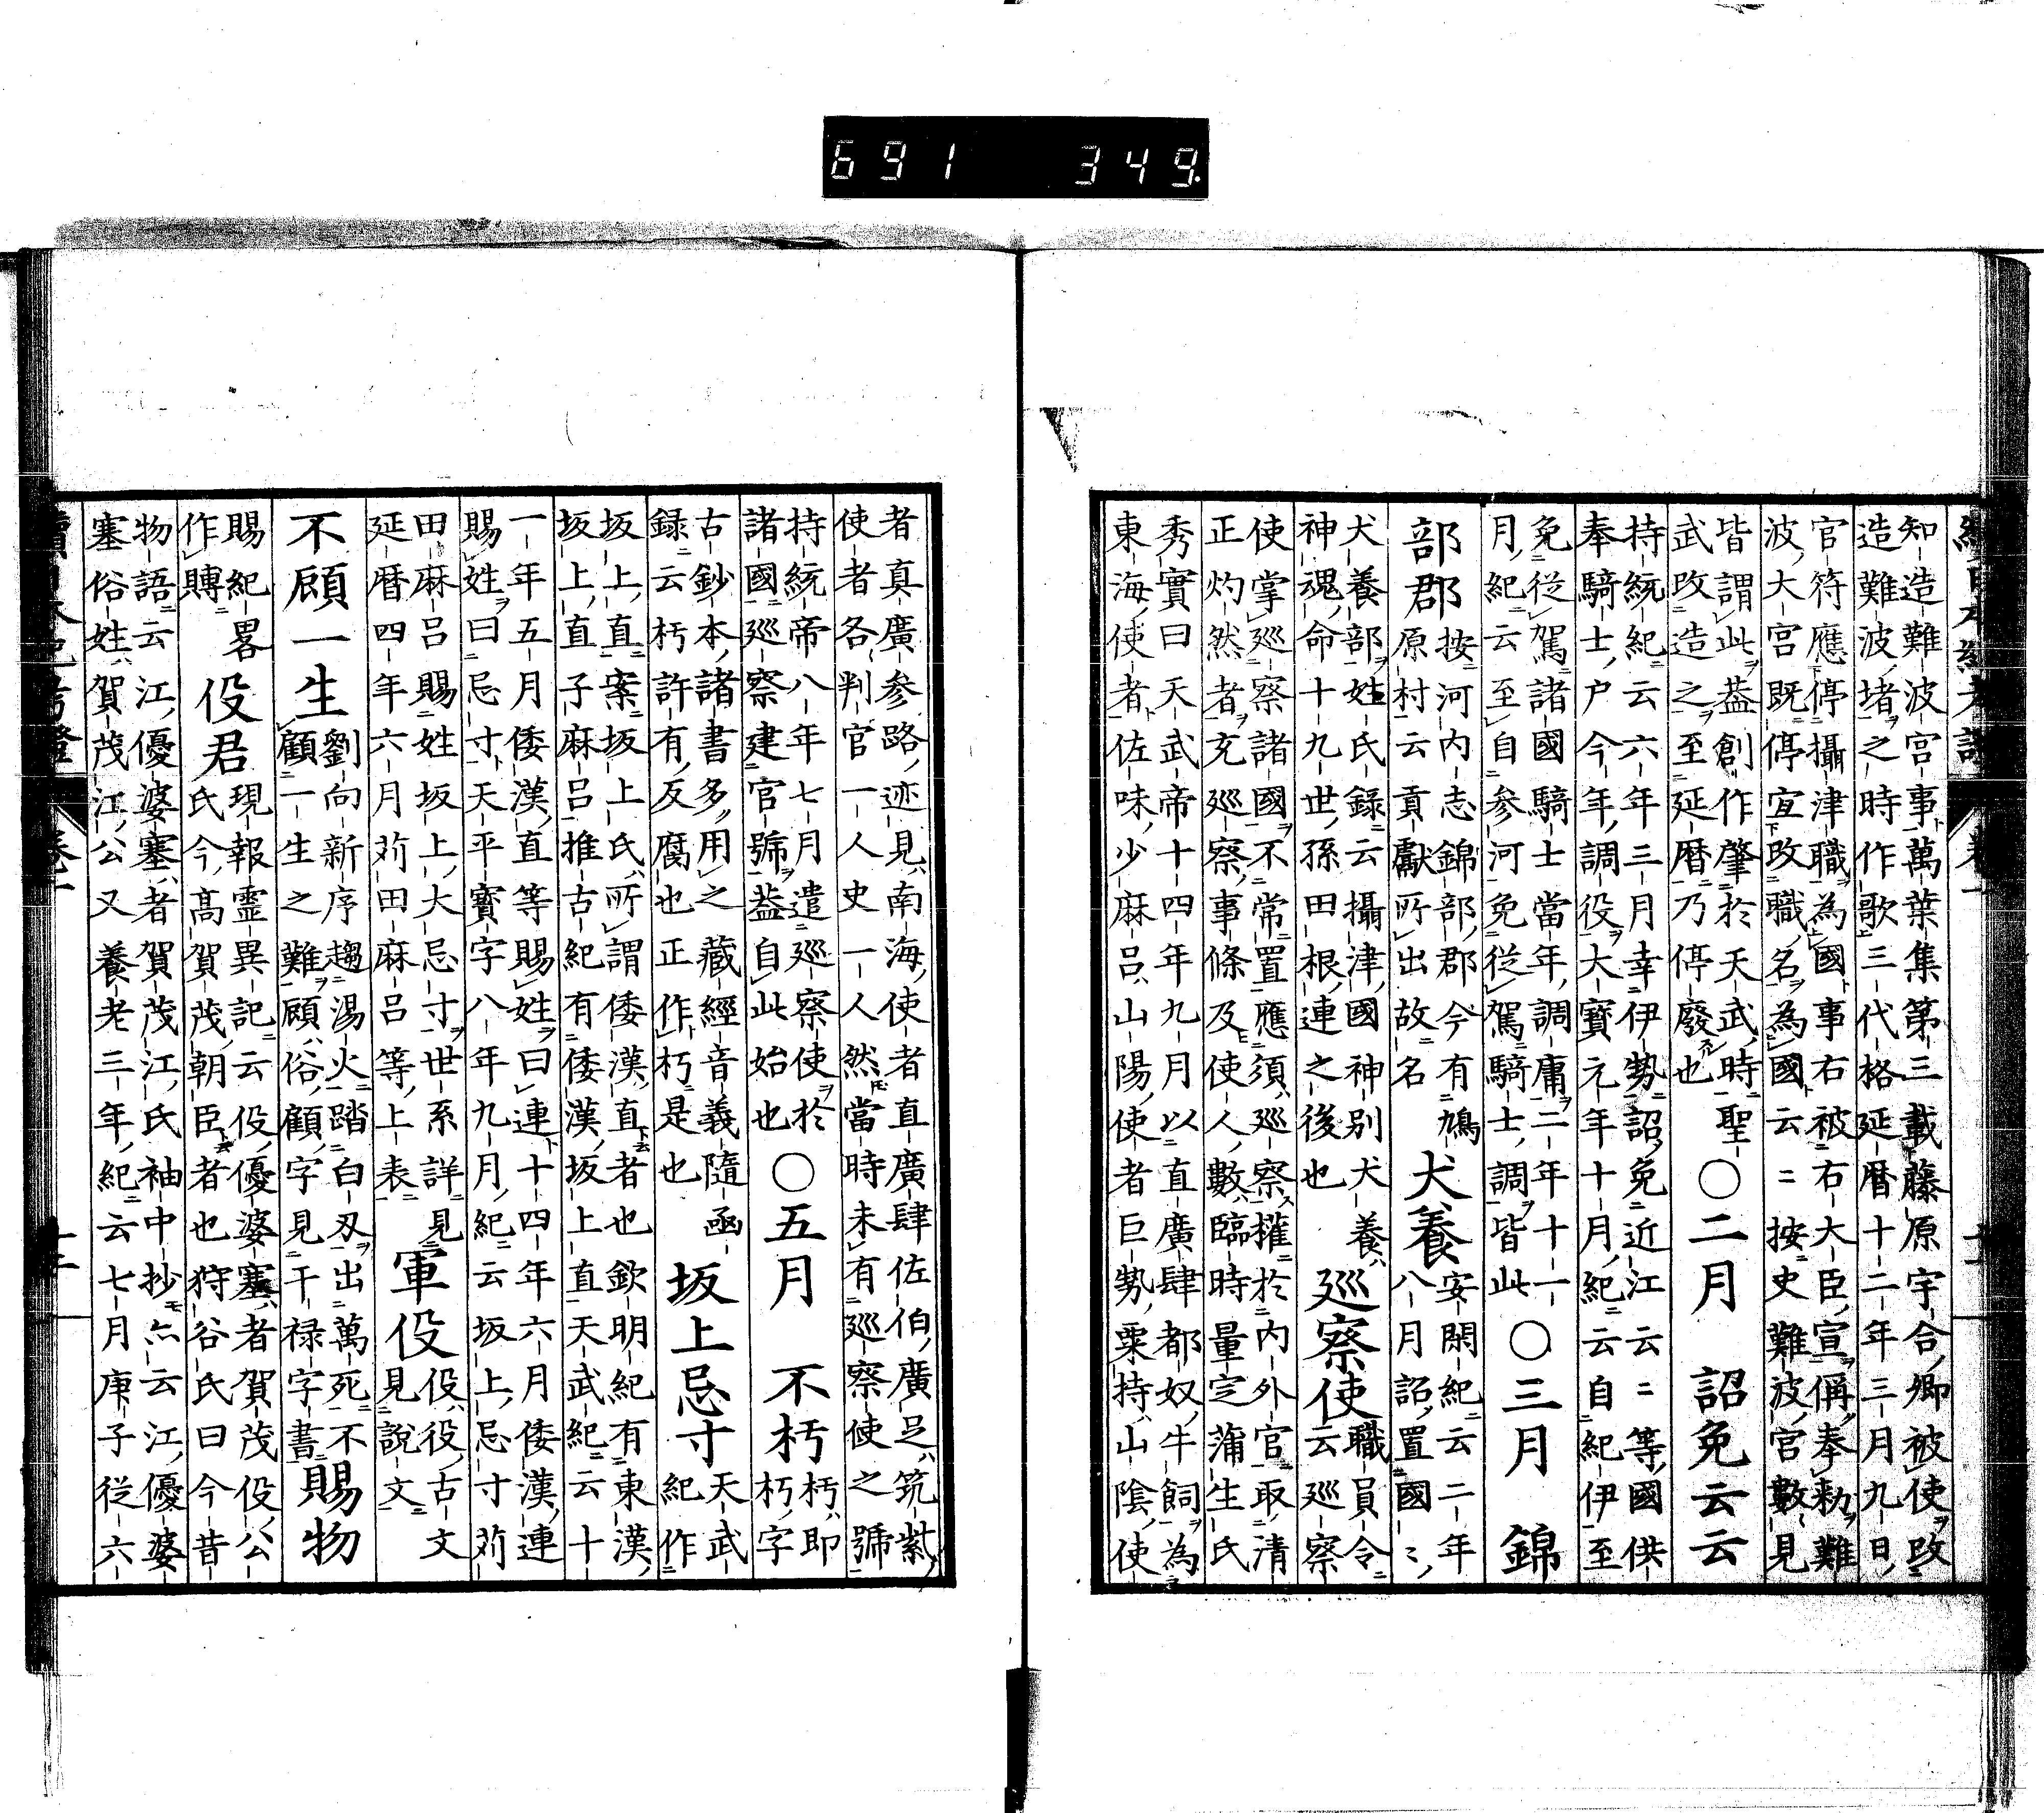 691 349
知造難波宮事萬葉集第三載藤原宇合卿被使改
造難波堵之時作歌三代格延暦十二年三月九日
官符應停攝津職為國事右被右大臣宣偁奉勅難
波大宮既停宜改職名為國云〻按史難波宮數見
皆謂此葢創作肇於天武時聖
武改造之至延暦乃停廢也
○二月 詔免云云
持統紀云六年三月幸伊勢詔免近江云〻等國供
奉騎士戸今年調役大寶元年十月紀云自紀伊至
免從駕諸國騎士當年調庸二年十一
月紀云至自參河免從駕騎士調皆此
○三月 錦
部郡
按河内志錦部郡今有鳩
原村云貢獻所出故名
犬養
安閑紀云二年
八月詔置國〻
犬養部姓氏錄云攝津國神別犬養
神魂命十九世孫田根連之後也
巡察使
職員令
云巡察
使掌巡察諸國不常置應須巡察擢於内外官取清
正灼然者充巡察事條及使人數臨時量定蒲生氏
秀實曰天武帝十四年九月以直廣肆都奴牛飼為
東海使者佐味少麻呂山陽使者巨勢粟持山陰使
者真廣參路迹見南海使者直廣肆佐伯廣足筑紫
使者各判官一人史一人然當時未有巡察使之號
持統帝八年七月遣巡察使於
諸國巡察建官號葢自此始也
○五月 不朽
朽即
朽字
古鈔本諸書多用之藏經音義隨函
録云朽許有反腐也正作朽是也
坂上忌寸
天武
紀作
坂上直案坂上氏所謂倭漢直者也欽明紀有東漢
坂上直子麻呂推古紀有倭漢坂上直天武紀云十
一年五月倭漢直等賜姓曰連十四年六月倭漢連
賜姓曰忌寸天平寶字八年九月紀云坂上忌寸苅
田麻呂賜姓坂上大忌寸世系詳見
延暦四年六月苅田麻呂等上表
軍役
役役古文
見說文
不顧一生
劉向新序趨湯火踏白刃出萬死不
顧一生之難顧俗顧字見干禄字書
賜物
賜紀畧
作賻
役君
現報靈異記云役優婆塞者賀茂役公
氏今高賀茂朝臣者也狩谷氏曰今昔
物語云江優婆塞者賀茂江氏袖中抄亦云江優婆
塞俗姓賀茂江公又養老三年紀云七月庚子從六